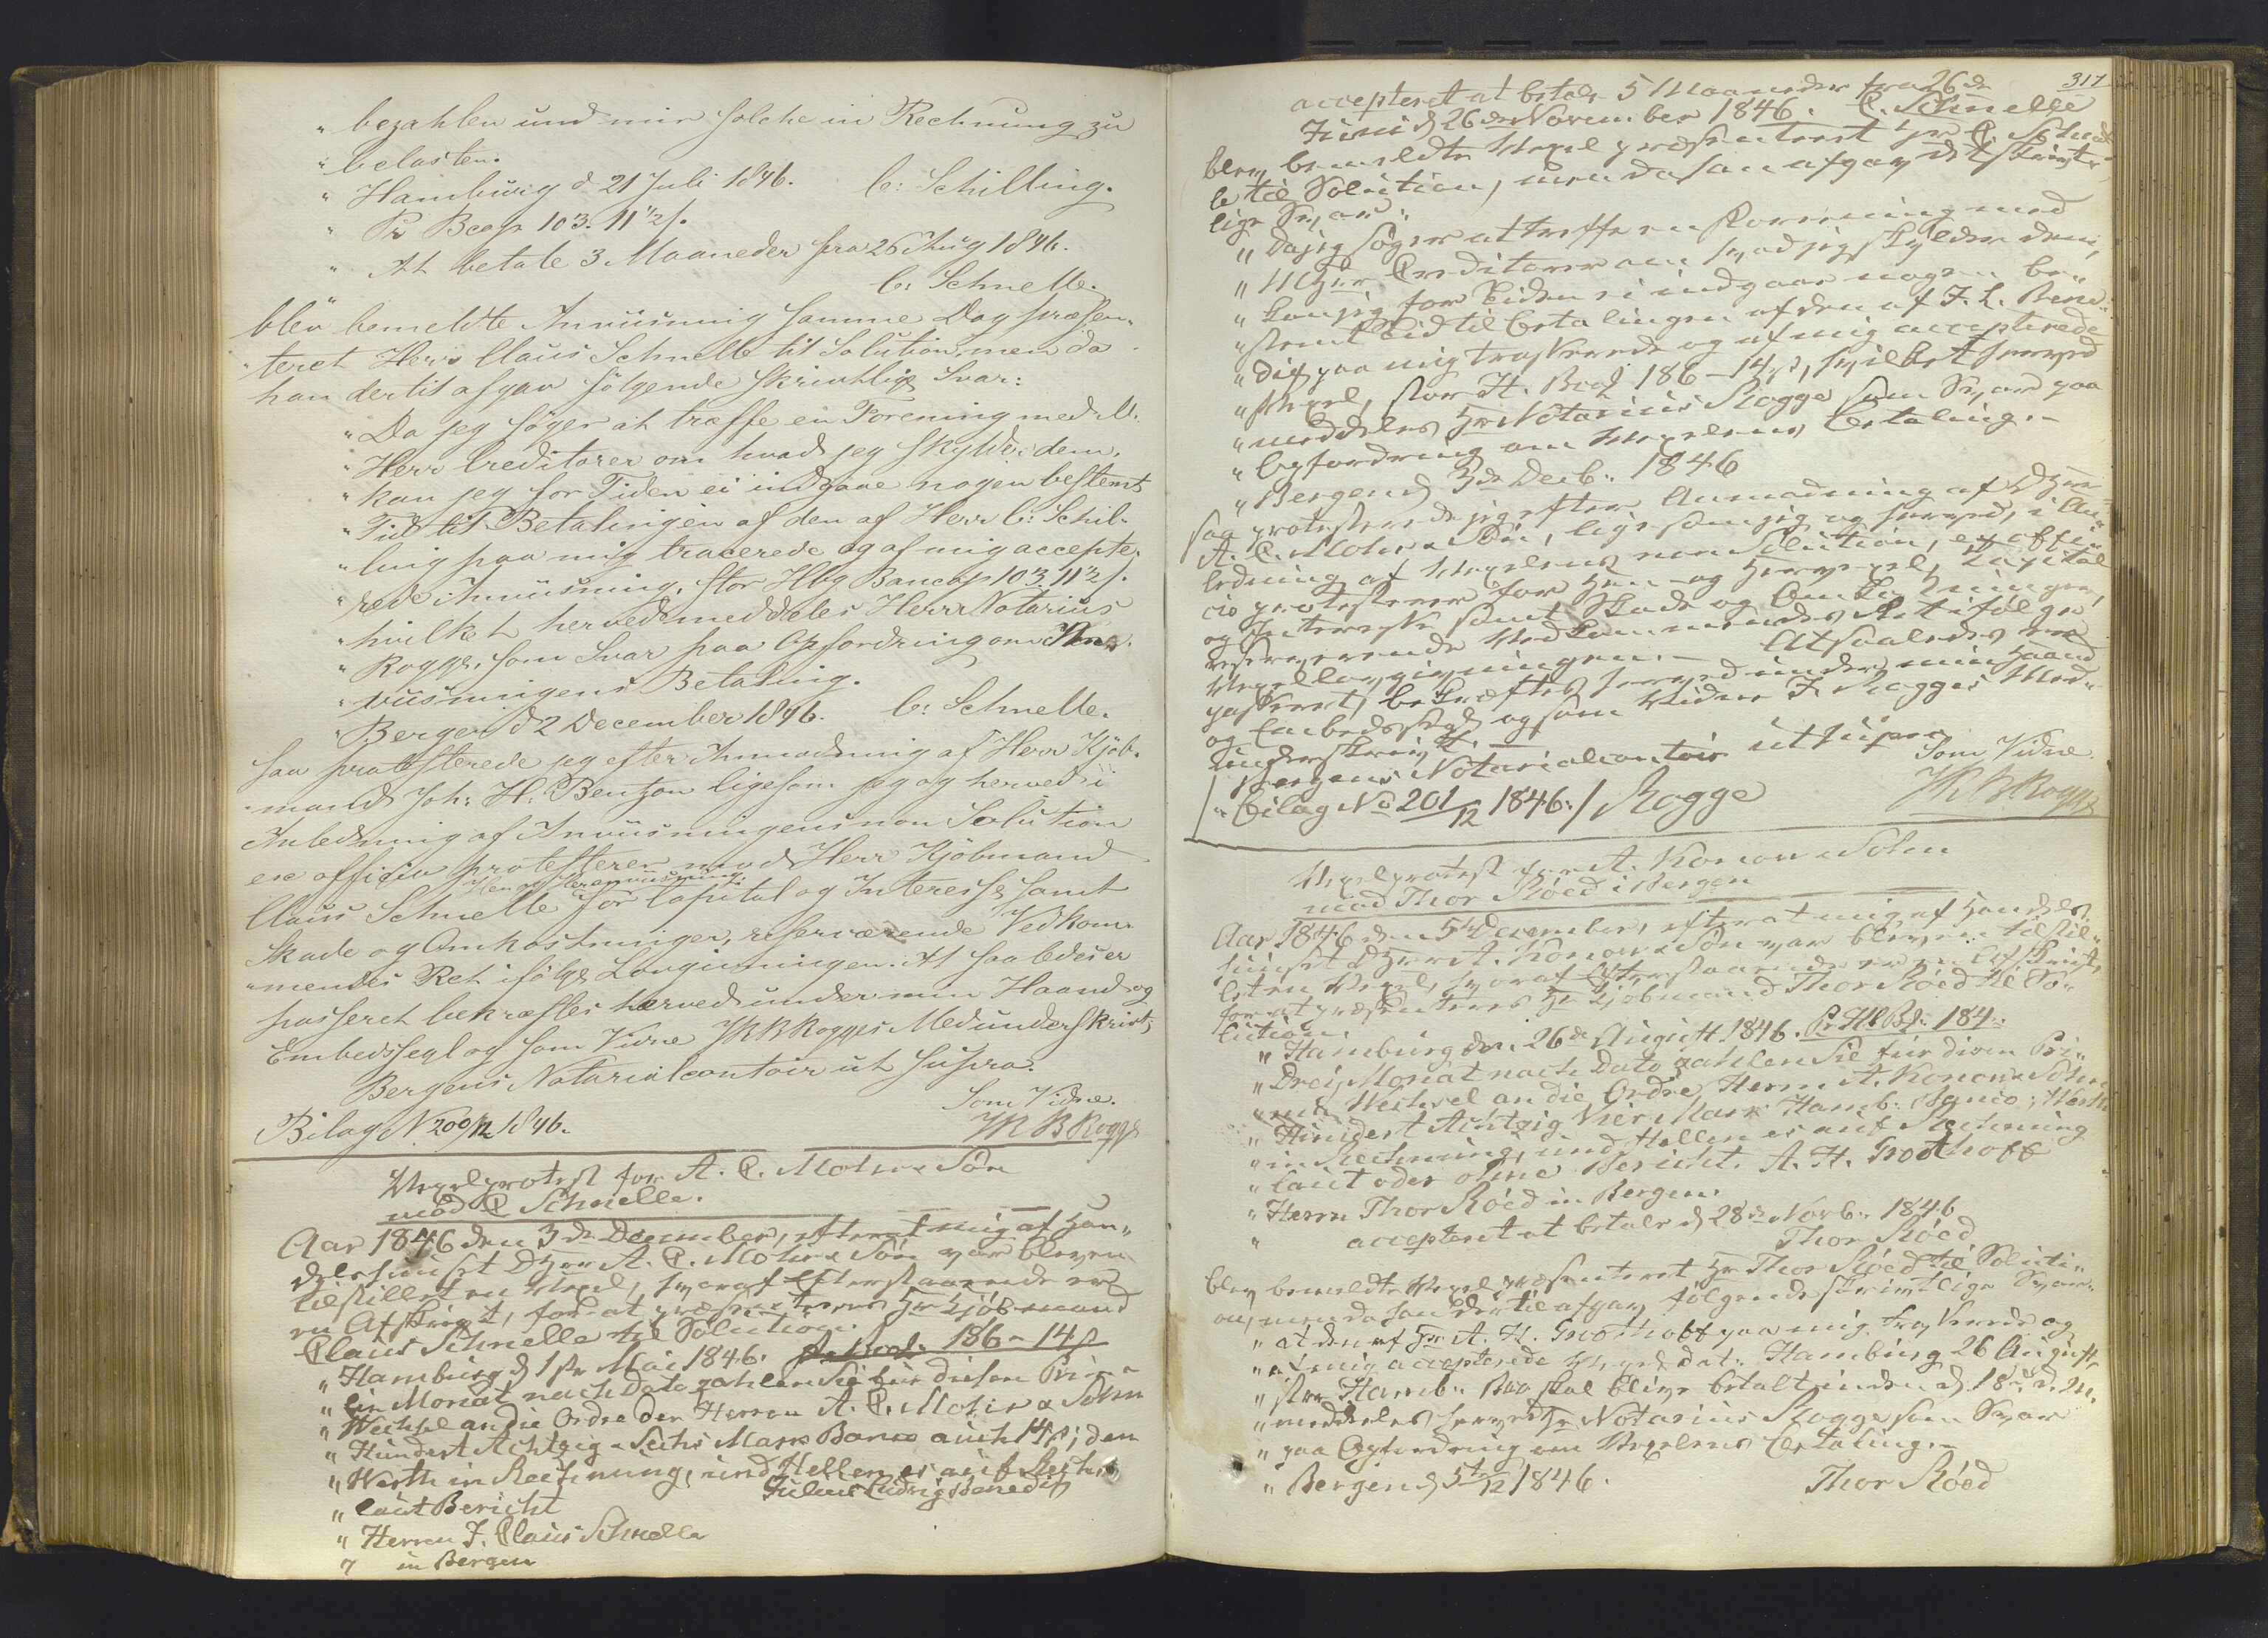 " bezahlen und mir solche in Rechnung zu
" belasten.
" Hamburg d 21 Juli 1846. C: Schilling.
" Pr Bcop 103. 11 1/2 s.
" At betale 3 Maaneder fra 26 Aug 1846.
C: Schnelle.
blev bemeldte Anviisning samme Dag præsen-
teret Herr Claus Schnelle til Solution, men da
han dertil afgav følgende skrivtlige Svar:
" Da jeg søger at træffe en Forening med M.
" Herr Creditorer om hvad jeg skylder dem,
" kan jeg for Tiden ei indgaae nogen bestemt
" Tid til Betalingen af den af Herr C: Schil-
" ling paa mig tracerede og af mig accepte-
" rede Anviisning, stor Hbg Banco 103. 11 1/2 s.
" hvilket herved meddeles Herr Notarius
" Rogge, som Svar paa Opfordring om An-
" viisningens Betaling.
" Bergen d 2 December 1846. C: Schnelle.
saa protesterede jeg efter Anmodning af Herr Kjøb-
mand Joh: H: Bentzon ligesom jeg og herved i
Anledning af Anviisningens non Solution
ex officio protesterer mod Herr Kjøbmand
Claus Schnelle for Capital og Interesse samt
Skade og Omkostninger, reserverende Vedkom-
mendes Ret ifølge Lovgivningen. At saaledes er
passeret bekræftes herved under min Haand og
Embedssegl og som Vidne JRB Rogges Medunderskrivt,
Bergens Notarialcontoir ut supra.
Som Vidne.
Bilag No 200/12 1846. JRB Rogge
Vexelprotest for A. C. Mohr & Søn
mod C Schnelle.
Aar 1846 den 3de December, efterat mig af Han-
delshuset DHrr A. C. Mohr & Søn var bleven
tilstillet en Vexel, hvoraf Efterstaaende er
en Afskrivt, for at præsenteres Hr Kjøbmand
Claus Schnelle til Solution.
" Hamburg d 1ste Mai 1846. Pr Bco 186 - 14 s
" Ein Monat nach Dato zahlen Sie für diesen Prima
" Wechsel an die Ordre der Herren A. C. Mohr & Sohn
" Hundert Achtzig & Sechs Mark Banco auch 14 s; den
" Werth in Rechnung, und stellen es auf Rechn
" laut Bericht Julius Ludvig Benedix
" Herren J. Claus Schnelle
" in Bergen
317
accepteret at betale 5 Maaneder fra 26de
Juni d 26de November 1846. C. Schnelle
blev bemeldte Vexel præsenteret Hr C. Schnel-
le til Solution, men da han afgav det skrivt-
lige Svar:
" Da jeg søger at træffe en Forening med
" M Hrr Creditorer om hvad jeg skylder dem,
" kan jeg for Tiden ei indgaae nogen be-
" stemt Tid til Betalingen af den af J. L. Bene-
" dix paa mig trasserede og af mig accepterede
" Vexel, stor H. Bco 186 - 14 s, hvilket herved
" meddeles Hr Notarius Rogge som Svar paa
" Opfordring om Vexelens Betaling. -
" Bergen d 3de Decb: 1846
saa protesterede jeg efter Anmodning af DHrr
A. C. Mohr & Søn, ligesom jeg og herved, i An-
ledning af Vexelens non Solution, ex offi-
cio protesterer for Hen- og Hervexel, Capital
og Interesse samt Skade og Omkostninger,
reserverende Vedkommendes Ret ifølge
Vexellovgivningen. - At saaledes er
passeret, bekræftes herved under min Haand
og Embedssegl og som Vidne J. Rogges Med-
underskrivt. -
Bergens Notarialcontoir ut supra
Som Vidne
/: Bilag No 201/12 1846 :/ Rogge JRB Rogge
Vexelprotest for A. Konow & Sohn
mod Thor Róed i Bergen
Aar 1846 den 5te December, efterat mig af Handels-
huset DHrr A. Konow & Søn var bleven tilstil-
let en Vexel, hvoraf Efterstaaende er en Afskrivt,
for at præsenteres Hr Kjøbmand Thor Róed til So-
lution.
" Hamburg den 26de August 1846. Pr H Bco 184.
" Drey Monat nach Dato zahlen Sie für diesen Pri-
" ma Wechsel an die Ordre Herrn A. Konow & Sohn
" Hundert Achtzig Vier Mark Hamb: Banco, Werth
" in Rechnung, und stellen es auf Rechnung
" laut oder ohne Bericht. A. H. Groothoff
" Herrn Thor Róed in Bergen.
" accepteret at betale d 28de Novb: 1846
Thor Róed
blev bemeldte Vexel præsenteret Hr Thor Róed til Soluti-
on, men da han dertil afgav følgende skrivtlige Svar:
" at den af Hr A. H. Groothoff paa mig trasserede og
" af mig accepterede Vexel dat: Hamburg 26 August,
" stor Hamb: Bco skal blive betalt inden d 18de d. M.
" meddeles herved Hr Notarius Rogge som Svar
" paa Opfordring om Vexelens Betaling. -
" Bergen d 5te/12 1846. Thor Róed